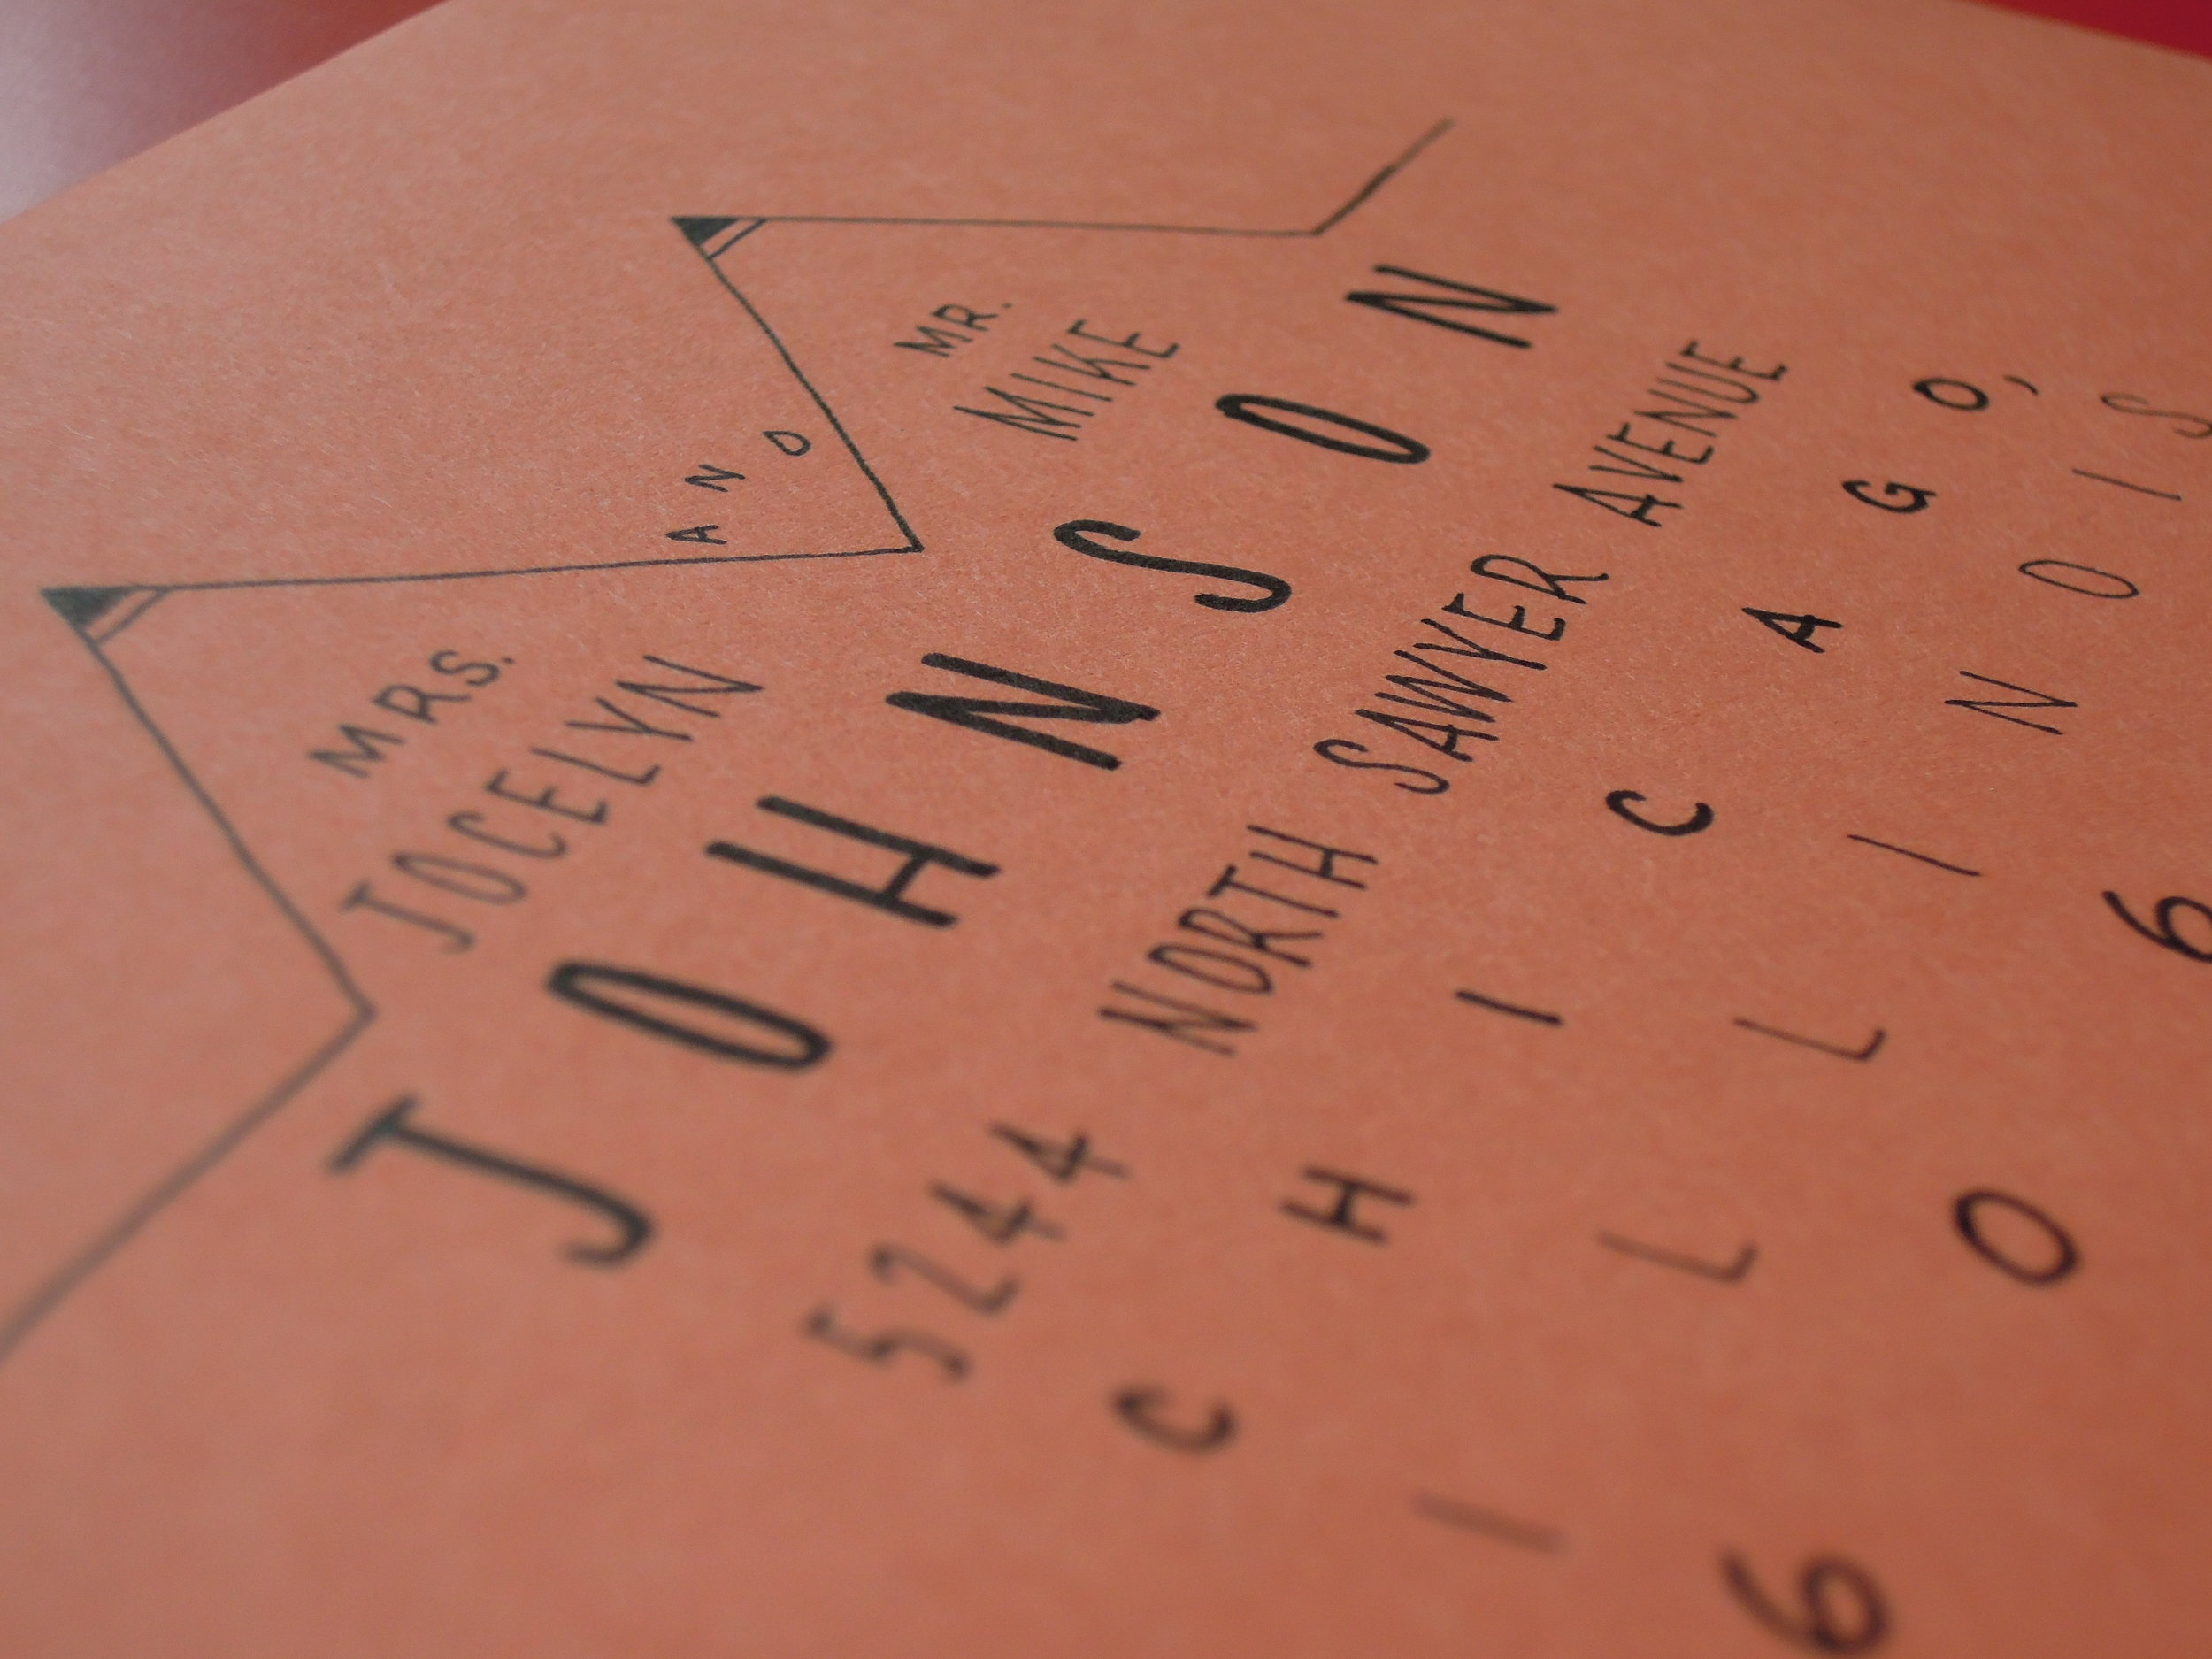 MRS. AND MR.
JOCELYN MIKE
JOHNSON
5244 NORTH SAWYER AVENUE
CHICAGO,
ILLINOIS
606